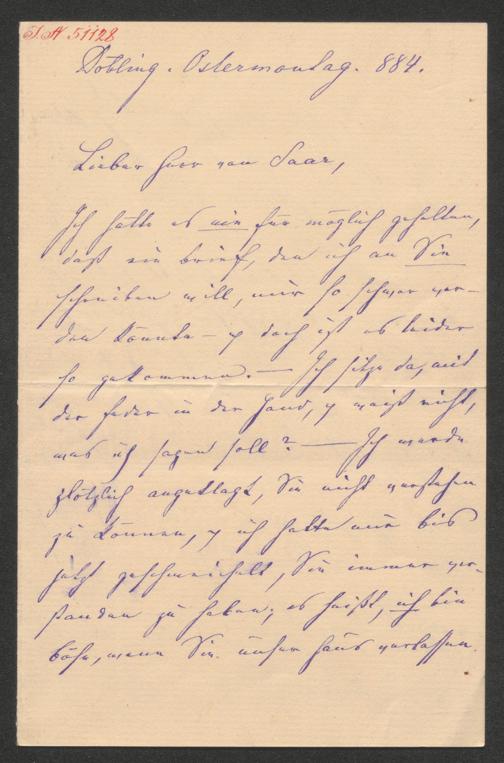 I.N 51128
Döbling. Ostermontag. 884.
Lieber Herr von Saar,
Ich hätte es nie für möglich gehalten,
daß ein Brief, den ich an Sie
schreiben will, mir so schwer wer-
den könnte – u doch ist es leider
so gekommen. – Ich sitze da, mit
der Feder in der Hand, u weiß nicht,
was ich sagen soll? – Ich werde
plötzlich angeklagt, Sie nicht verstehen
zu können, u ich hatte mir bis
jetzt geschmeichelt, Sie immer ver-
standen zu haben; es heißt, ich bin
böse, wenn Sie unser Haus verlassen.